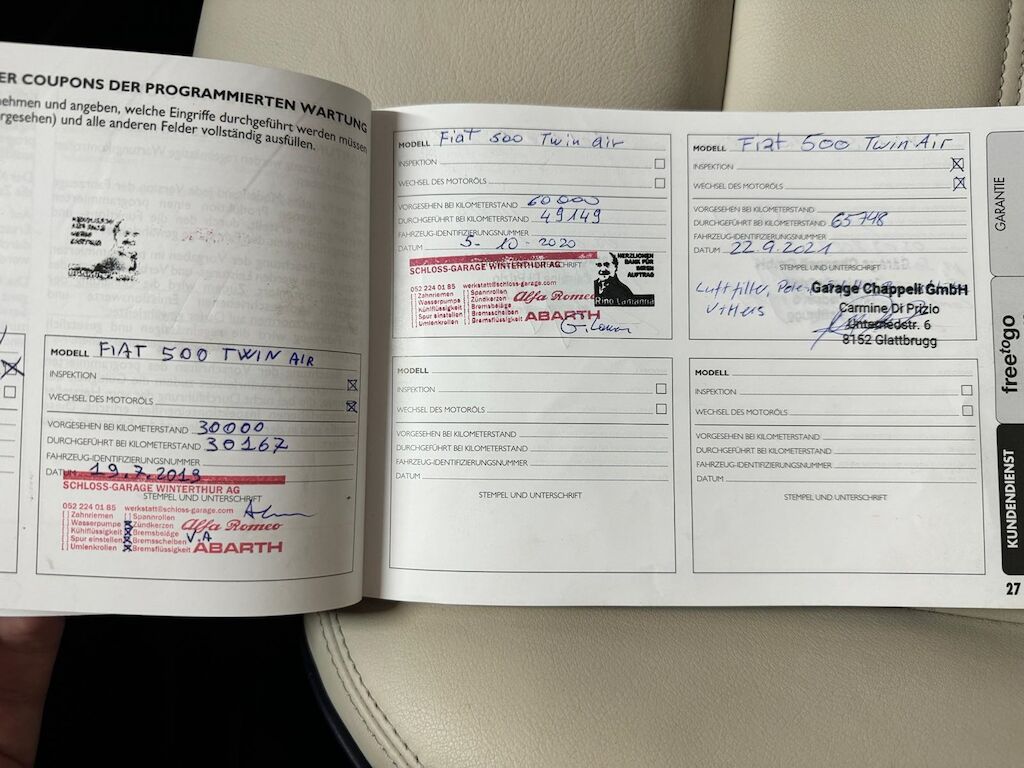 ER COUPONS DER PROGRAMMIERTEN WARTUNG
ehmen und angeben, welche Eingriffe durchgeführt werden müssen
rgesehen) und alle anderen Felder vollständig ausfüllen.
MODELL FIAT 500 TWIN AIR
INSPEKTION
WECHSEL DES MOTORÖLS
VORGESEHEN BEI KILOMETERSTAND 30000
DURCHGEFÜHRT BEI KILOMETERSTAND 30167
FAHRZEUG-IDENTIFIZIERUNGSNUMMER
DATUM 19.7.2019
SCHLOSS-GARAGE WINTERTHUR AG
STEMPEL UND UNTERSCHRIFT
052 224 01 85 werkstatt@schloss-garage.com
[ ] Zahnriemen [ ] Spannrollen
[ ] Wasserpumpe Zündkerzen Alfa Romeo
[ ] Kühlflüssigkeit Bremsbeläge V.A
[ ] Spur einstellen Bremsscheiben ABARTH
[ ] Umlenkrollen Bremsflüssigkeit
MODELL Fiat 500 Twin air
INSPEKTION
WECHSEL DES MOTORÖLS
VORGESEHEN BEI KILOMETERSTAND 60000
DURCHGEFÜHRT BEI KILOMETERSTAND 49149
FAHRZEUG-IDENTIFIZIERUNGSNUMMER
DATUM 5-10-2020
SCHLOSS-GARAGE WINTERTHUR AG
052 224 01 85 werkstatt@schloss-garage.com
[ ] Zahnriemen [ ] Spannrollen
[ ] Wasserpumpe [ ] Zündkerzen Alfa Romeo
[ ] Kühlflüssigkeit [ ] Bremsbeläge
[ ] Spur einstellen [ ] Bremsscheiben ABARTH
[ ] Umlenkrollen [ ] Bremsflüssigkeit
HERZLICHEN
DANK FÜR
IHREN
AUFTRAG
MODELL Fiat 500 Twin Air
INSPEKTION
WECHSEL DES MOTORÖLS
VORGESEHEN BEI KILOMETERSTAND
DURCHGEFÜHRT BEI KILOMETERSTAND 65748
FAHRZEUG-IDENTIFIZIERUNGSNUMMER
DATUM 22.9.2021
STEMPEL UND UNTERSCHRIFT
Luftfilter,
Garage Chappeli GmbH
Carmine Di Prizio
Unterriedstr. 6
8152 Glattbrugg
MODELL
INSPEKTION
WECHSEL DES MOTORÖLS
VORGESEHEN BEI KILOMETERSTAND
DURCHGEFÜHRT BEI KILOMETERSTAND
FAHRZEUG-IDENTIFIZIERUNGSNUMMER
DATUM
STEMPEL UND UNTERSCHRIFT
MODELL
INSPEKTION
WECHSEL DES MOTORÖLS
VORGESEHEN BEI KILOMETERSTAND
DURCHGEFÜHRT BEI KILOMETERSTAND
FAHRZEUG-IDENTIFIZIERUNGSNUMMER
DATUM
STEMPEL UND UNTERSCHRIFT
GARANTIE
freetogo
KUNDENDIENST
27